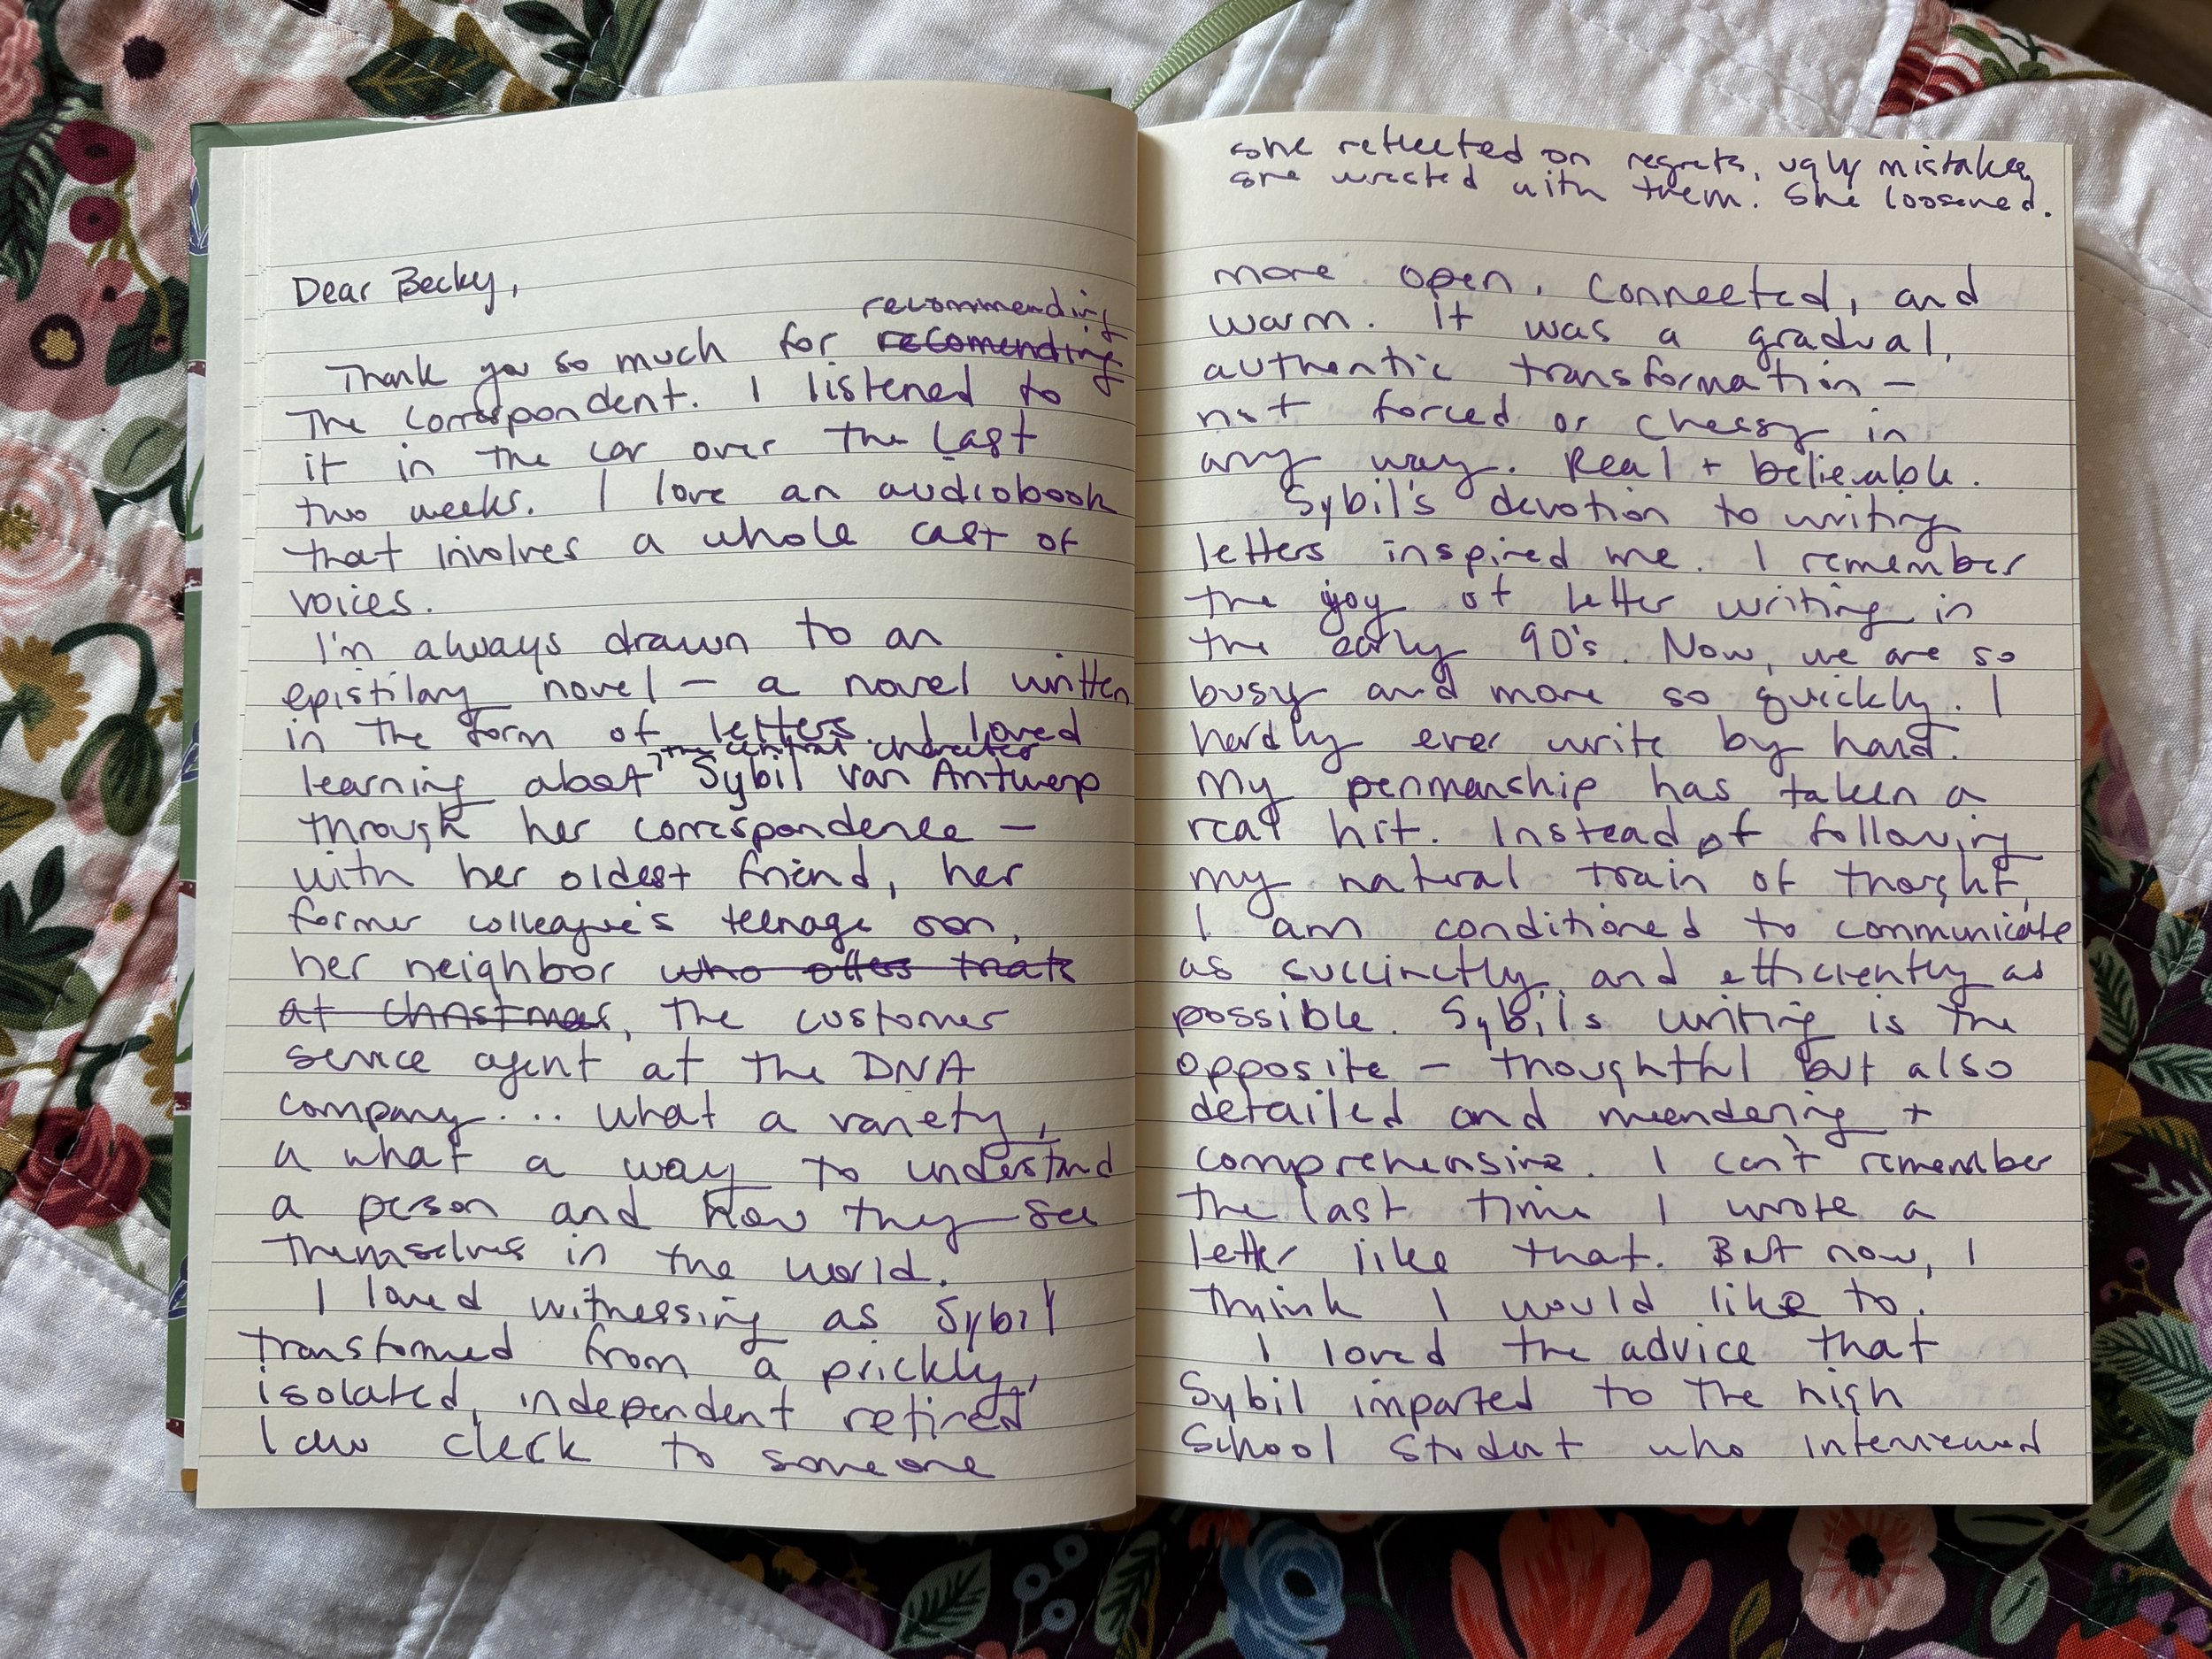 Dear Becky,
recommending
Thank you so much for recomending
The Correspondent. I listened to
it in the car over the last
two weeks. I love an audiobook
that involves a whole cast of
voices.
I'm always drawn to an
epistilary novel — a novel written
in the form of letters. I loved
the central character
learning about Sybil Van Antwerp
through her correspondence —
with her oldest friend, her
former colleague's teenage son,
her neighbor who offers treats
at Christmas, the customer
service agent at the DNA
company... what a variety,
a what a way to understand
a person and how they see
themselves in the world.
I loved witnessing as Sybil
transformed from a prickly,
isolated, independent retired
law clerk to someone
she reflected on regrets, ugly mistakes,
she wrested with them. She loosened.
more open, connected, and
warm. It was a gradual,
authentic transformation —
not forced or chessy in
any way. Real + believable.
Sybil's devotion to writing
letters inspired me. I remember
the joy of letter writing in
the early 90's. Now, we are so
busy and more so quickly. I
hardly ever write by hand.
My penmanship has taken a
real hit. Instead of following
my natural train of thought,
I am conditioned to communicate
as succinctly and efficiently as
possible. Sybil's writing is the
opposite — thoughtful but also
detailed and meandering +
comprehensive. I can't remember
the last time I wrote a
letter like that. But now, I
think I would like to.
I loved the advice that
Sybil imparted to the high
school student who interviewed